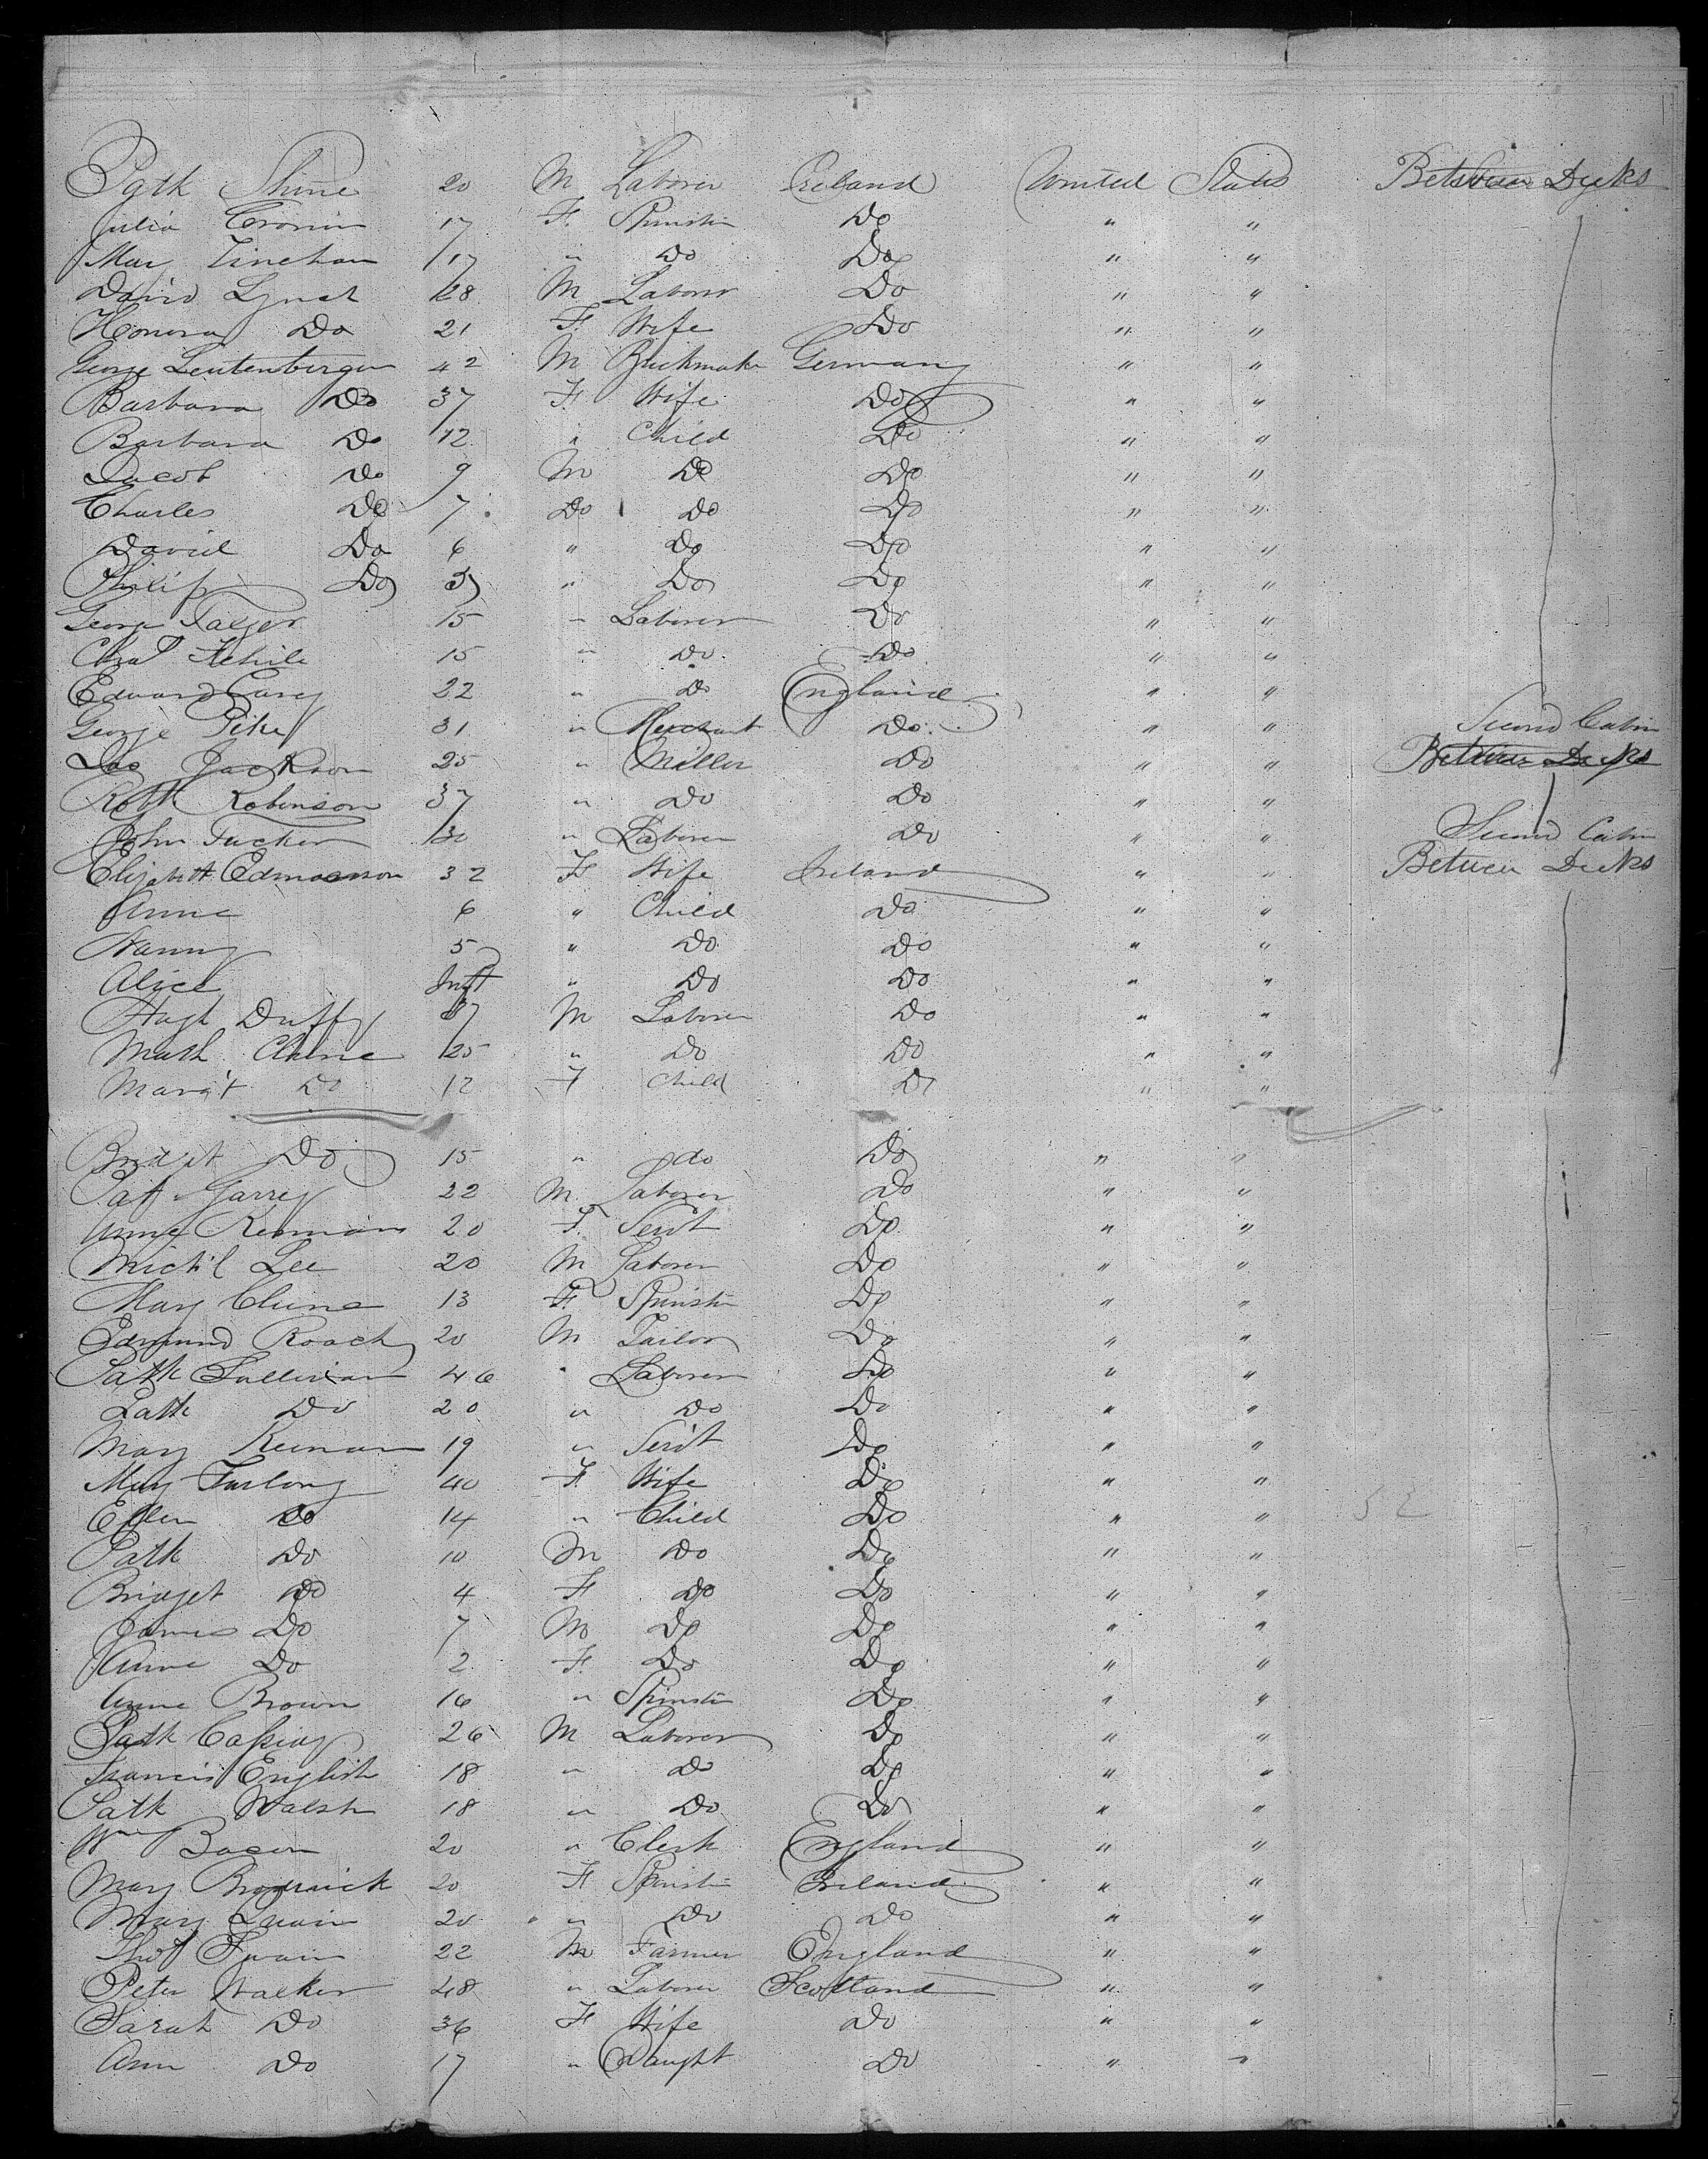 Patk Shine 20 M Laborer Ireland United States Between Decks
Julia Cronin 17 F. Spinster Do " "
Mary Linehan 17 " Do Do " "
David Lynch 28 M Laborer Do " "
Honora Do 21 F. Wife Do " "
George Leutenberger 42 M Brickmaker Germany " "
Barbara Do 37 F. Wife Do " "
Barbara Do 12 " Child Do " "
Jacob Do 9 M Do Do " "
Charles Do 7 Do Do Do " "
David Do 6 " Do Do " "
Philip Do 3 " Do Do " "
George 15 " Laborer Do " "
15 " Do Do " "
Edward Carey 22 " Do England " "
George Pike 31 " Merchant Do " " Second Cabin
Jackson 25 " Miller Do " " Between Decks
Robt Robinson 37 " Do Do " "
John Tucker 30 " Laborer Do " " Second Cabin
Elizabeth Edmonson 32 F Wife Ireland " " Between Decks
Anne 6 " Child Do " "
Nanny 5 " Do Do " "
Alice Inft " Do Do " "
Hugh Duffy 37 M Laborer Do " "
Math Clune 25 " Do Do " "
Marg't Do 12 F Child Do " "
Bridget Do 15 " do Do " "
Pat Garrey 22 M Laborer Do " "
Anne Kernan 20 F. Servt Do " "
Mich'l Lee 20 M Laborer Do " "
Mary Clune 13 F Spinster Do " "
Edmund Roach 20 M Tailor Do " "
Patk Sullivan 46 " Laborer Do " "
Patk Do 20 " Do Do " "
Mary Keenan 19 " Servt Do " "
Mary Furlong 40 F. Wife Do " "
Ellen Do 14 " Child Do " "
Patk Do 10 M Do Do " "
Bridget Do 4 F Do Do " "
James Do 7 M Do Do " "
Anne Do 2 F. Do Do " "
Anne Brown 16 " Spinster Do " "
Patk Cassidy 26 M Laborer Do " "
Francis English 18 " Do Do " "
Patk Walsh 18 " Do Do " "
Wm Bacon 20 " Clerk England " "
Mary Brodrick 20 F Spinster Ireland " "
Mary 20 " Do Do " "
Thos Swain 22 M Farmer England " "
Peter Walker 48 " Laborer Scotland " "
Sarah Do 36 F Wife Do " "
Ann Do 17 " Daught Do " "